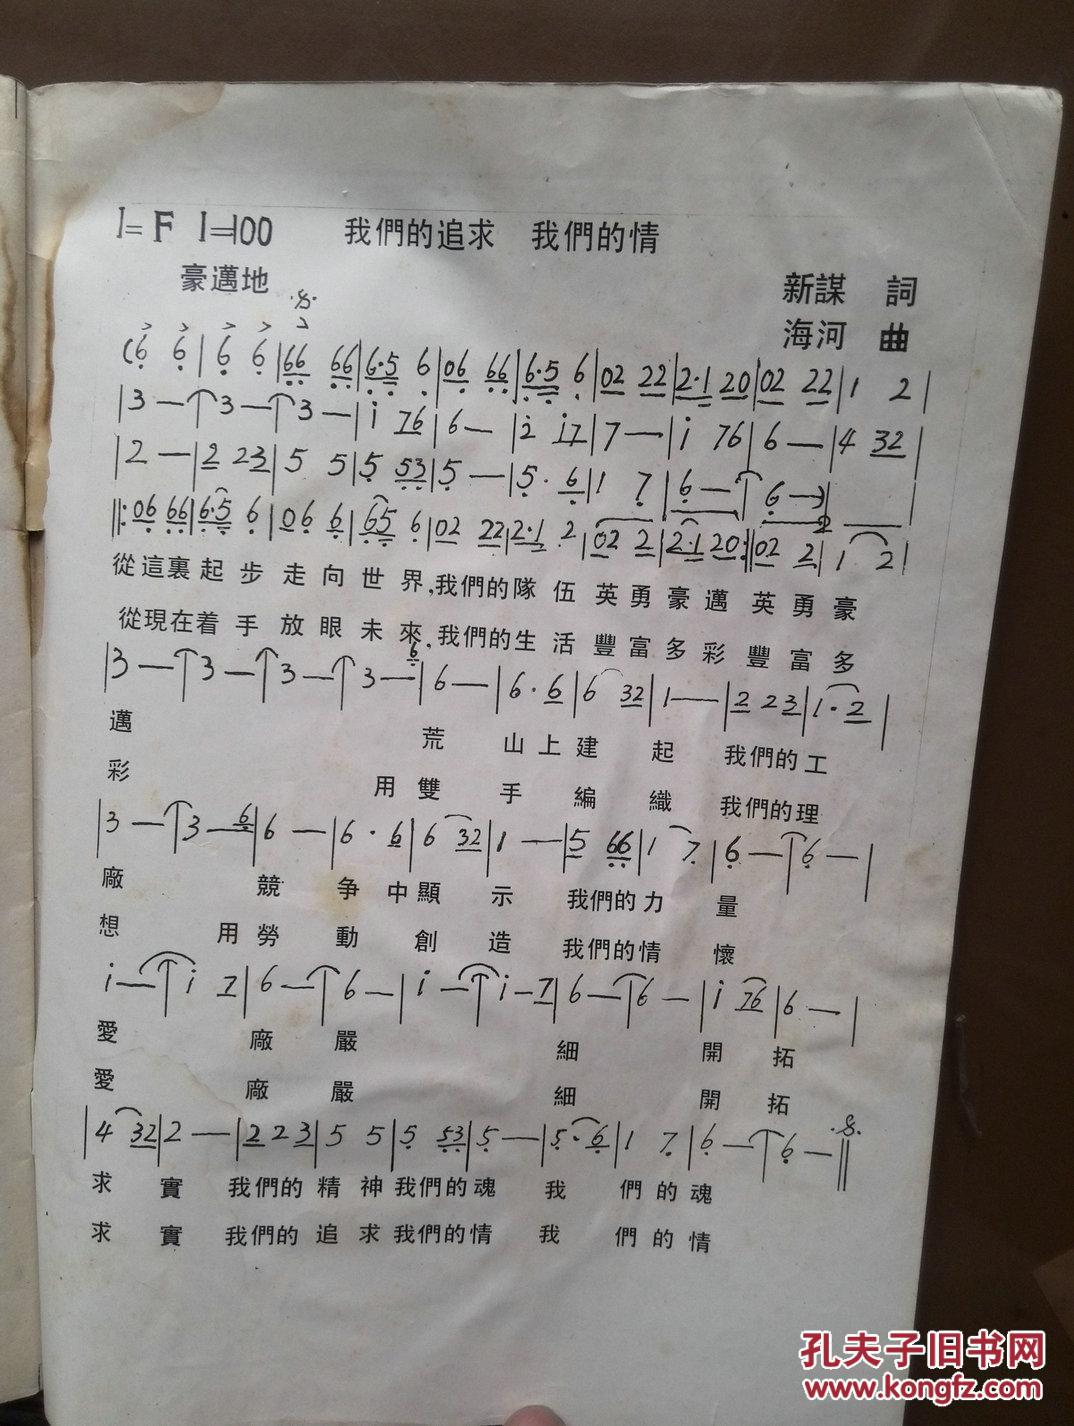 1= F 1=100 我們的追求 我們的情
豪邁地
新謀 詞
海河 曲
(6 6 | 6 6 | 66 66 | 6·5 6 | 06 66 | 6·5 6 | 02 22 | 2·1 20 | 02 22 | 1 2 |
| 3 — | 3 — | 3 — | i 76 | 6 — | 2 i7 | 7 — | i 76 | 6 — | 4 32 |
| 2 — | 2 23 | 5 5 | 5 53 | 5 — | 5· 6 | 1 7 | 6 — | 6 —) |
||: 06 66 | 6·5 6 | 06 6 | 65 6 | 02 22 | 2·1 2 | 02 2 | 2·1 20 :|| 02 2 | 1 2 |
從這裏起步走向世界,我們的隊伍英勇豪邁英勇豪
從現在着手放眼未來,我們的生活豐富多彩豐富多
| 3 — | 3 — | 3 — | 3 — 6 | 6 — | 6· 6 | 6 32 | 1 — | 2 23 | 1· 2 |
邁 荒山上建起 我們的工
彩 用雙手編織 我們的理
| 3 — | 3 — 6 | 6 — | 6· 6 | 6 32 | 1 — | 5 66 | 1 7 | 6 — | 6 — |
廠 競爭中顯示 我們的力量
想 用勞動創造 我們的情懷
i — | i 7 | 6 — | 6 — | i — | i — 7 | 6 — | 6 — | i 76 | 6 — |
愛 廠嚴 細 開拓
愛 廠嚴 細 開拓
| 4 32 | 2 — | 2 23 | 5 5 | 5 53 | 5 — | 5· 6 | 1 7 | 6 — | 6 — ||
求實 我們的精神我們的魂 我們的魂
求實 我們的追求我們的情 我們的情
孔夫子旧书网
www.kongfz.com